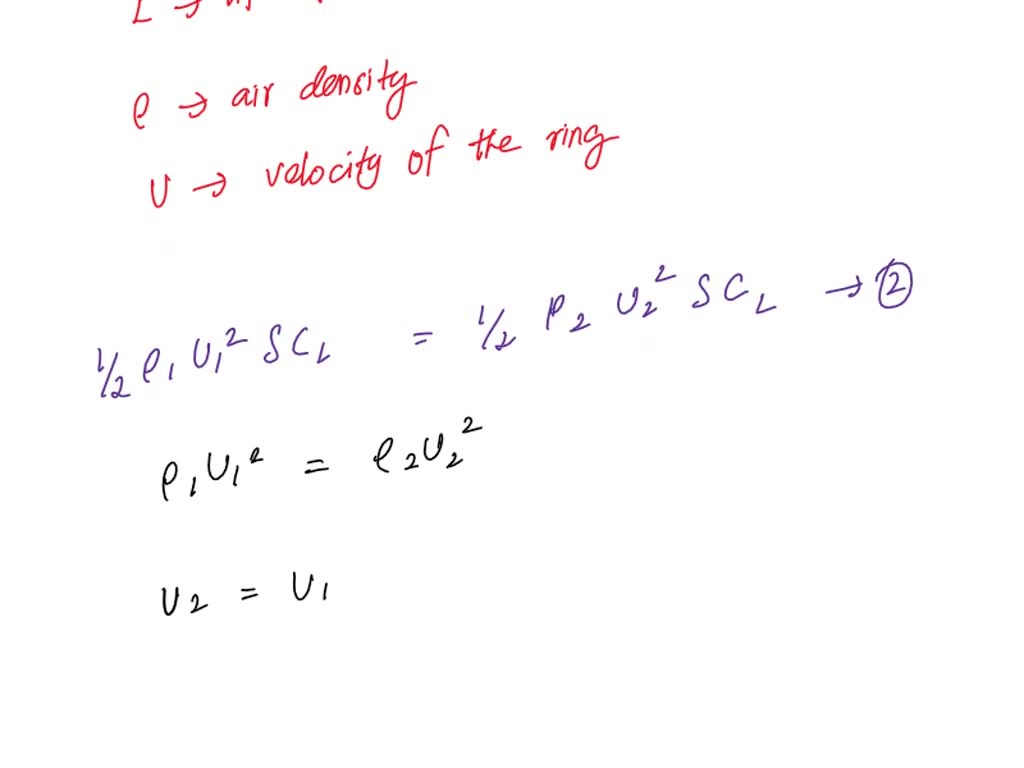 L →
ρ → air density
U → velocity of the ring
1/2 ρ₁ U₁² S C_L = 1/2 ρ₂ U₂² S C_L → ②
ρ₁ U₁² = ρ₂ U₂²
U₂ = U₁